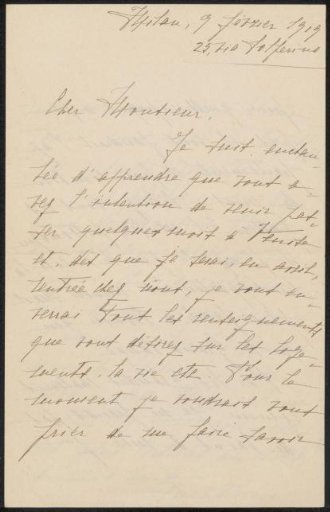 Milan, 9 février 1919
23, via Solferino
Cher Monsieur.
Je suis enchan-
tée d'apprendre que vous a-
vez l'intention de venir pas-
ser quelques mois à Venise
et, dès que je serai, en avril,
rentrée chez nous, je vous en-
verrai tous les renseignements
que vous désirez sur les loge-
ments, la vie etc. Pour le
moment je voudrais vous
prier de me faire savoir